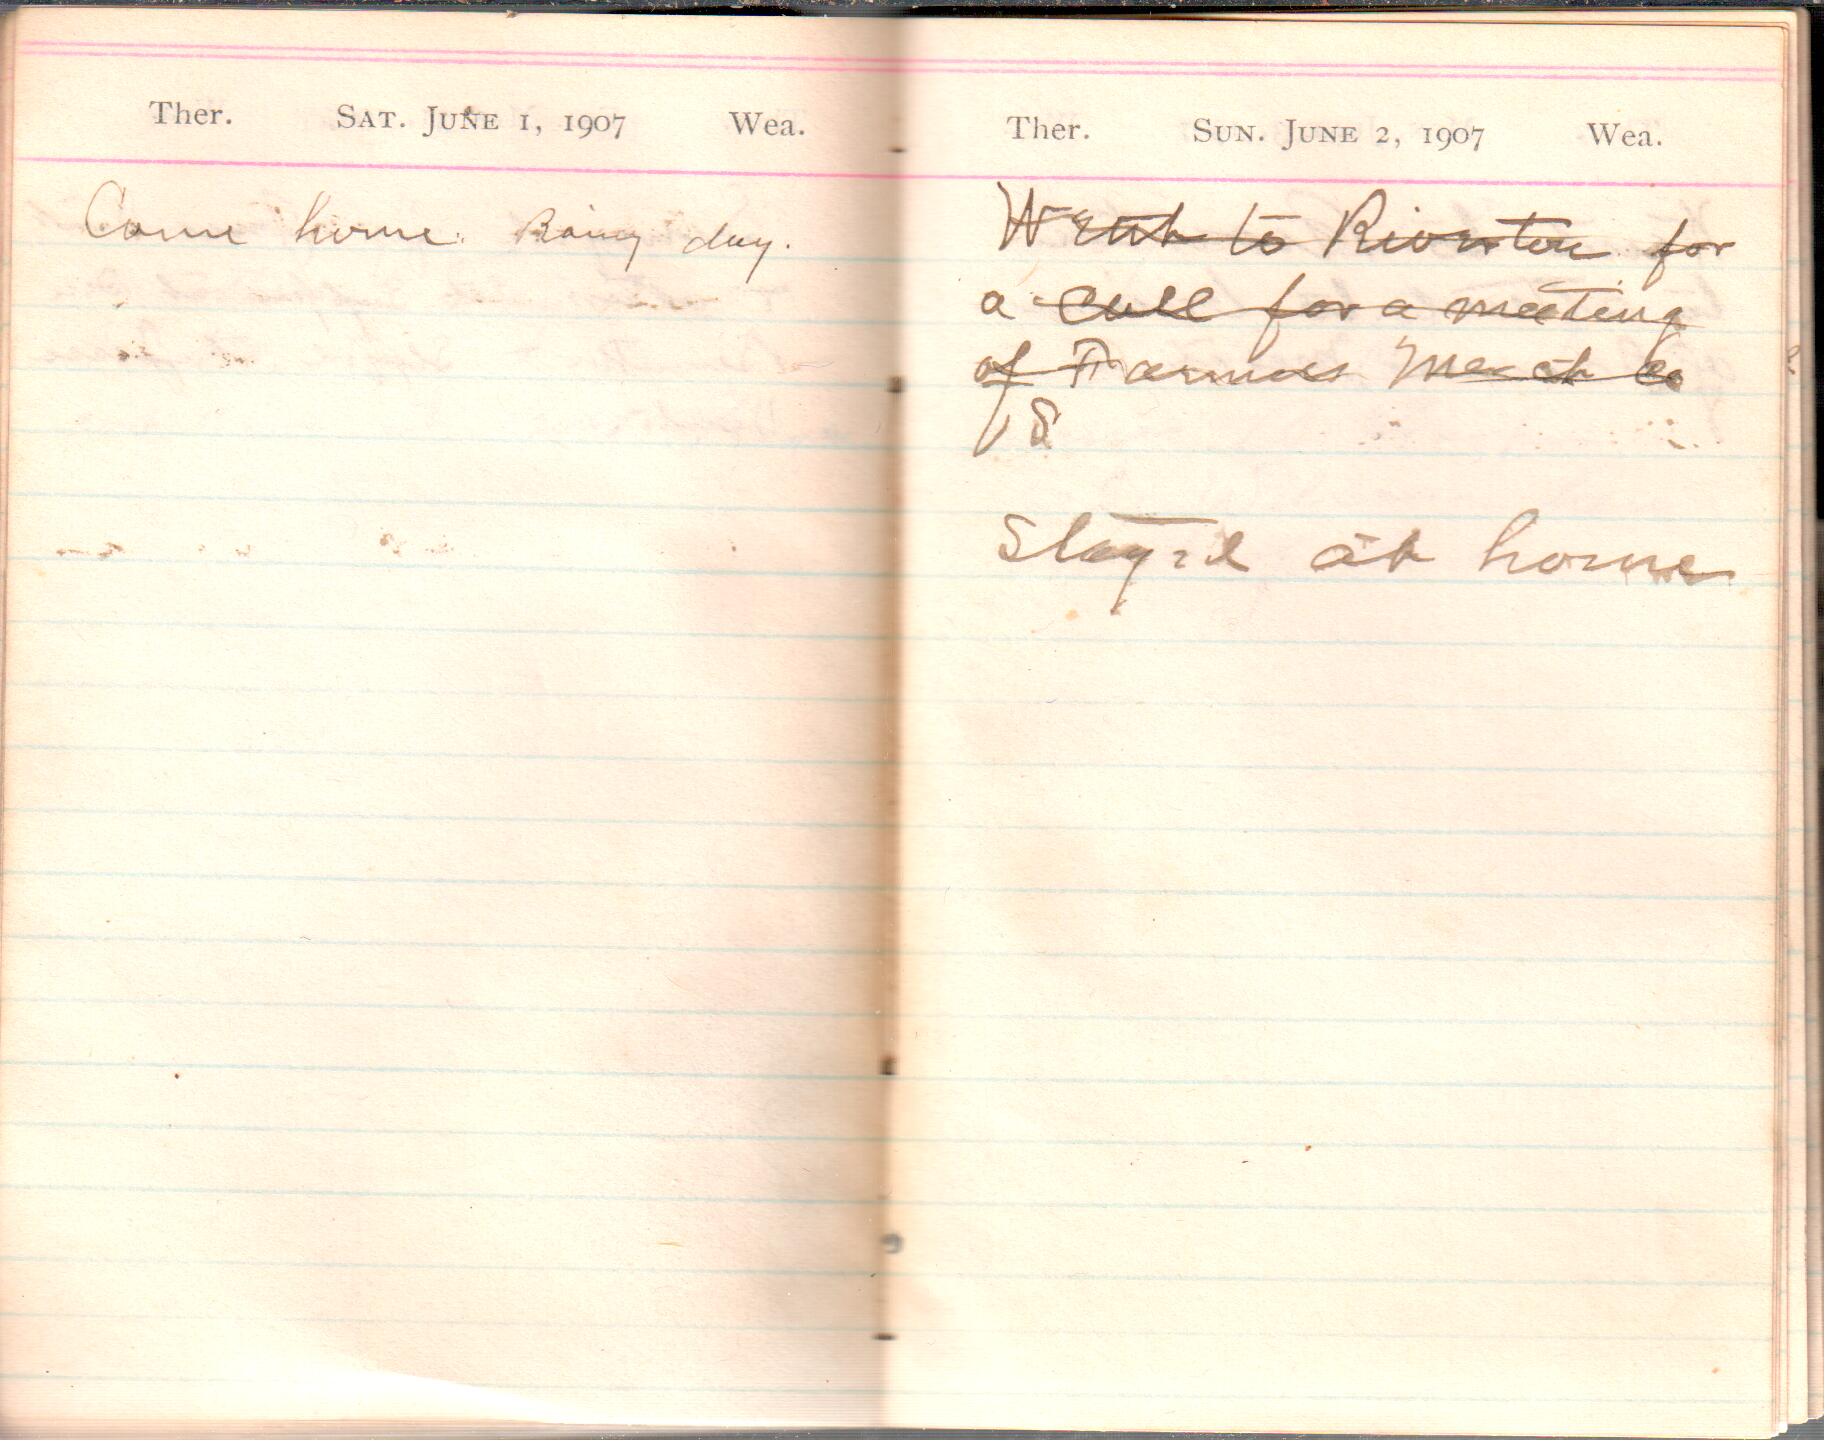 Ther. SAT. JUNE 1, 1907 Wea.
Came home. Rainy day.
Ther. SUN. JUNE 2, 1907 Wea.
Went to Riverton for
a call for a meeting
of Farmers Merch Co
S
Stayed at home